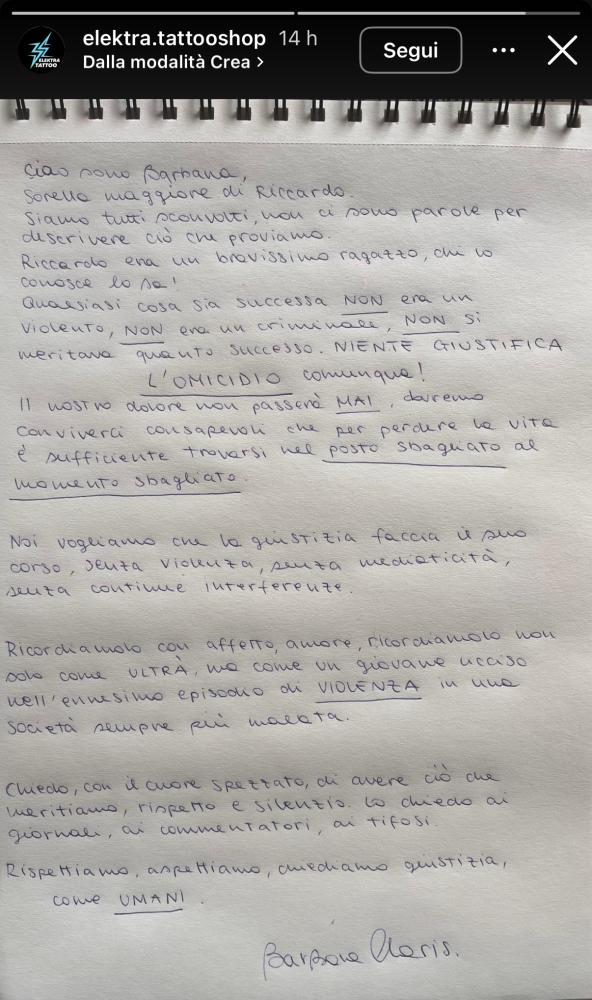 elektra.tattooshop 14 h
Dalla modalità Crea >
Segui
ELEKTRA
TATTOO
Ciao sono Barbara,
Sorella maggiore di Riccardo.
Siamo tutti sconvolti, non ci sono parole per
descrivere ciò che proviamo.
Riccardo era un bravissimo ragazzo, chi lo
conosce lo sa!
Qualsiasi cosa sia successa NON era un
violento, NON era un criminale, NON si
meritava quanto successo. NIENTE GIUSTIFICA
L'OMICIDIO comunque!
Il nostro dolore non passerà MAI, dovremo
conviverci consapevoli che per perdere la vita
è sufficiente trovarsi nel posto sbagliato al
momento sbagliato.
Noi vogliamo che la giustizia faccia il suo
corso, senza violenza, senza mediaticità,
senza continue interferenze.
Ricordiamolo con affetto, amore, ricordiamolo non
solo come ULTRÀ, ma come un giovane ucciso
nell'ennesimo episodio di VIOLENZA in una
società sempre più malata.
Chiedo, con il cuore spezzato, di avere ciò che
meritiamo, rispetto e silenzio. Lo chiedo ai
giornali, ai commentatori, ai tifosi.
Rispettiamo, aspettiamo, chiediamo giustizia,
come UMANI.
Barbara Claris.